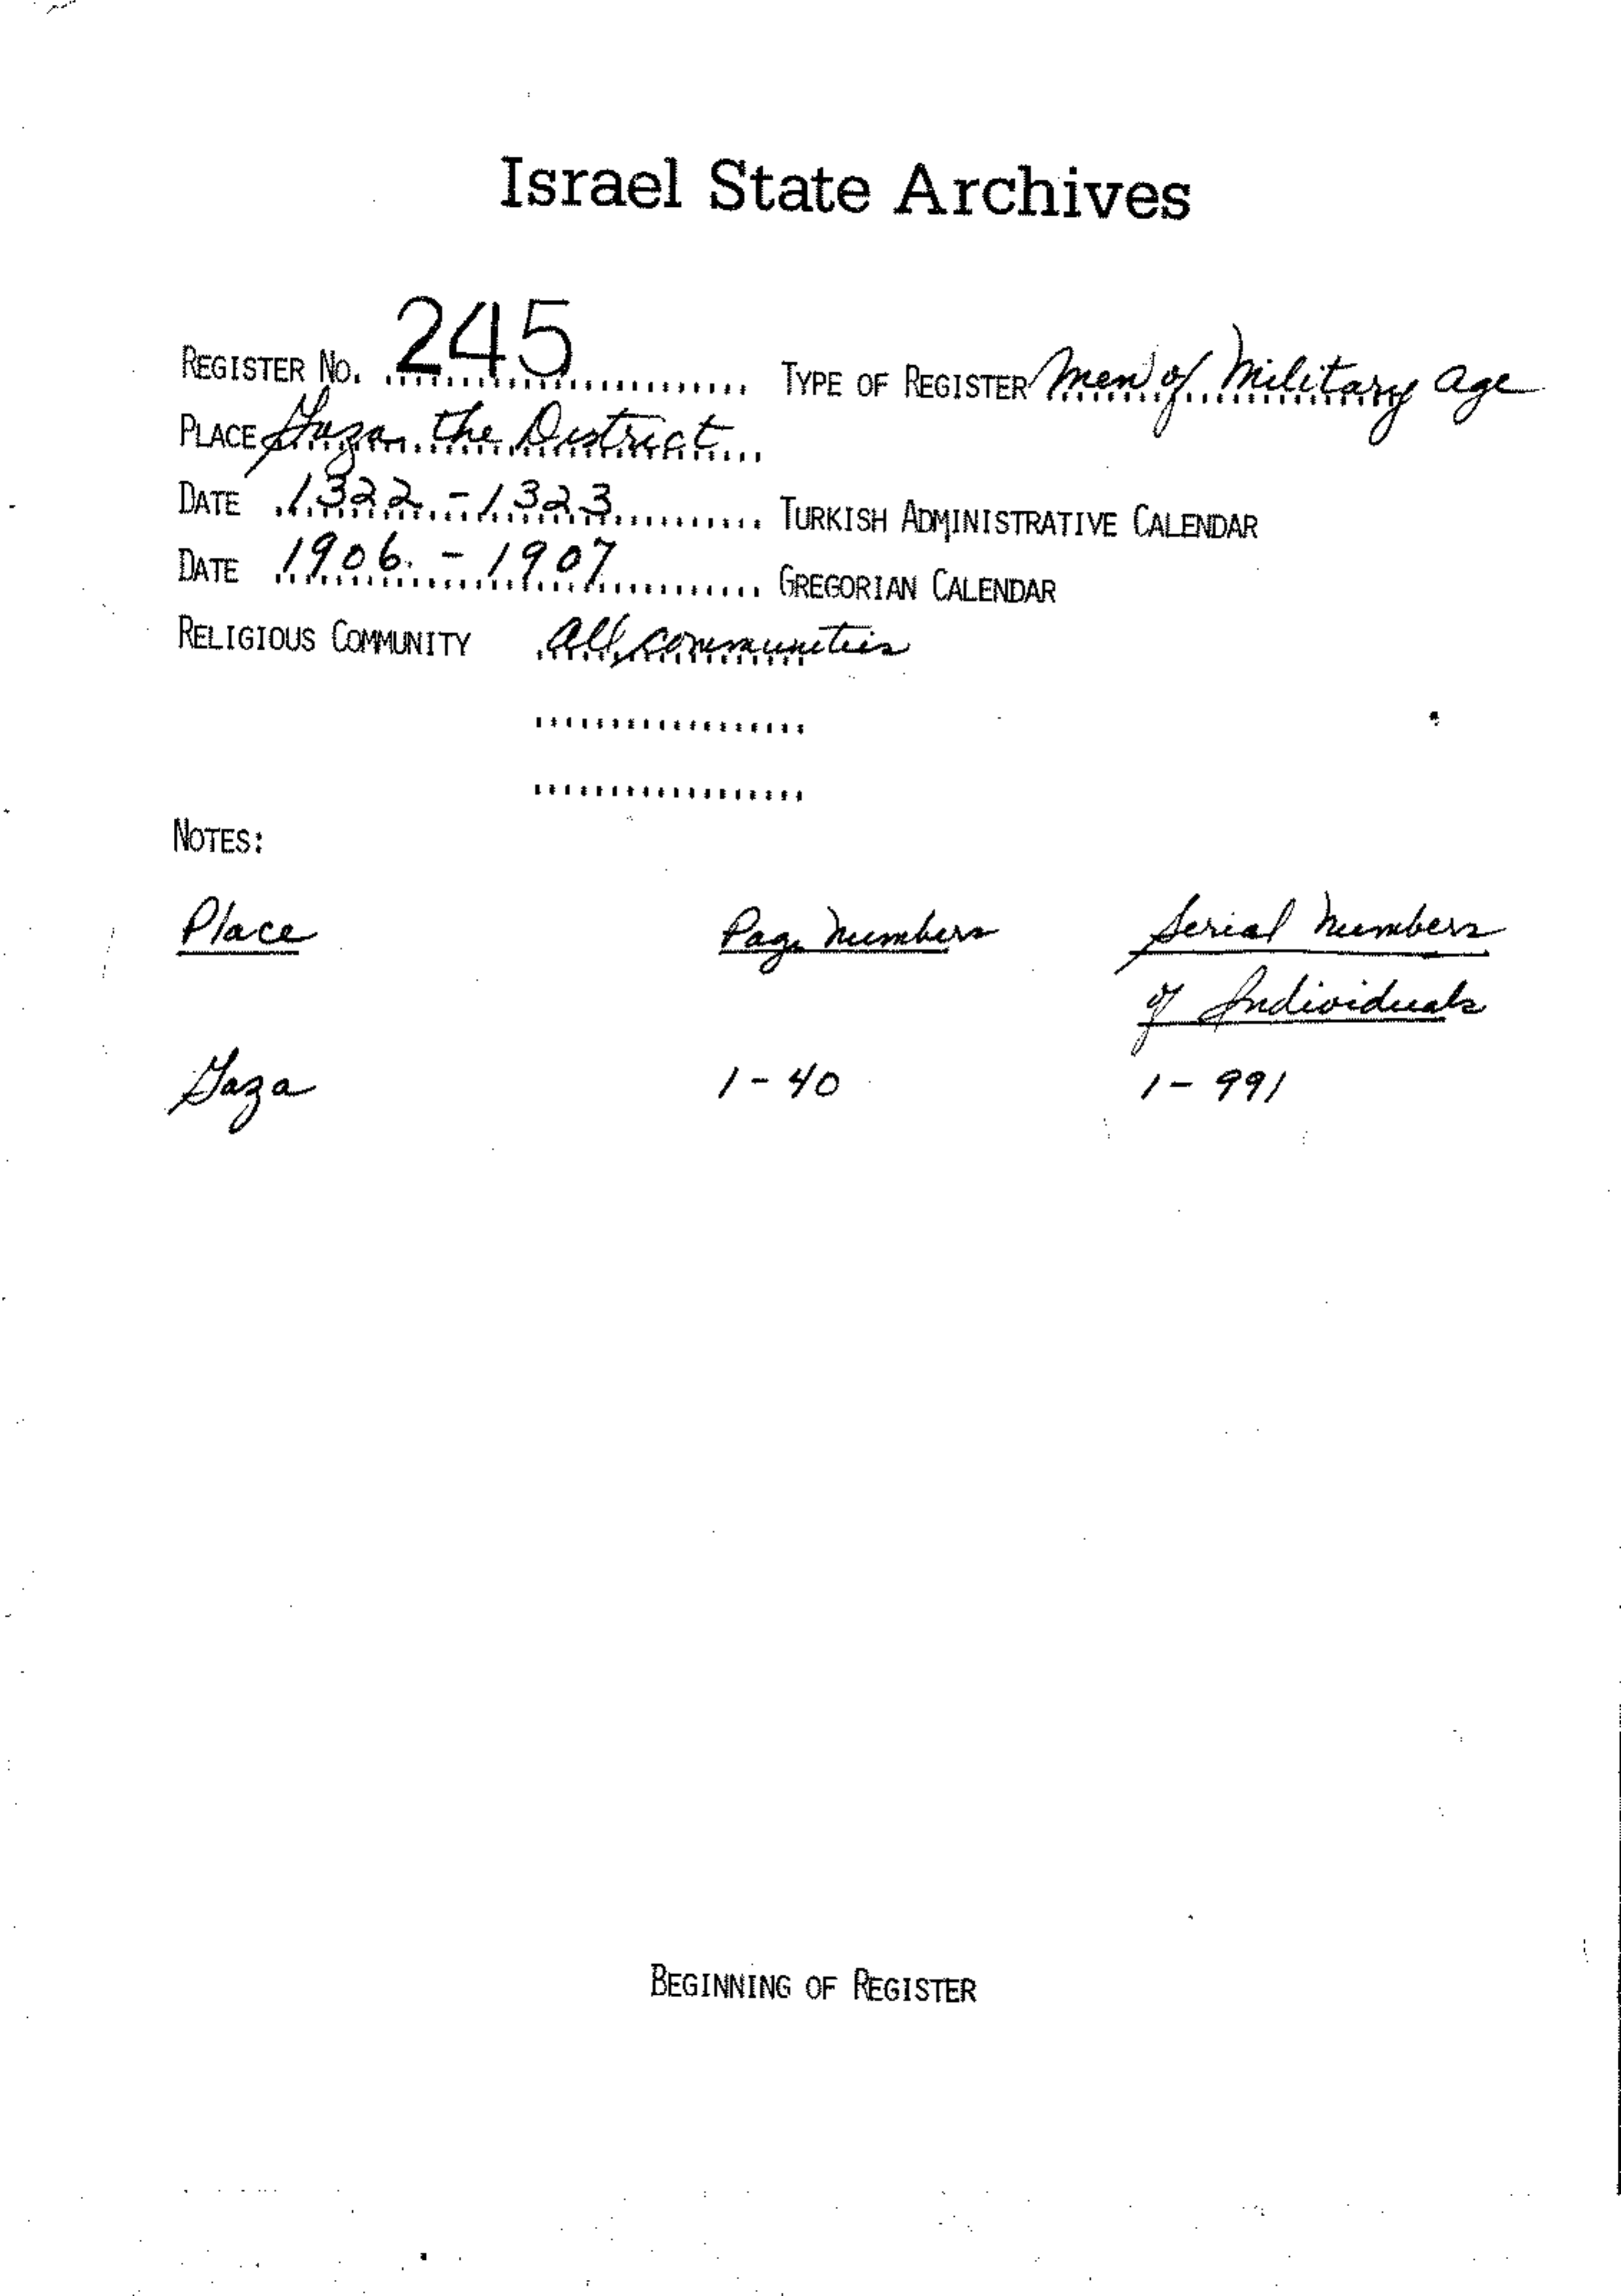 Israel State Archives
REGISTER NO. 245 TYPE OF REGISTER Men of Military Age
PLACE Gaza, the District
DATE 1322 - 1323 TURKISH ADMINISTRATIVE CALENDAR
DATE 1906. - 1907 GREGORIAN CALENDAR
RELIGIOUS COMMUNITY All communities
NOTES:
Place Page Numbers Serial Numbers
of Individuals
Gaza 1 - 40 1 - 991
BEGINNING OF REGISTER